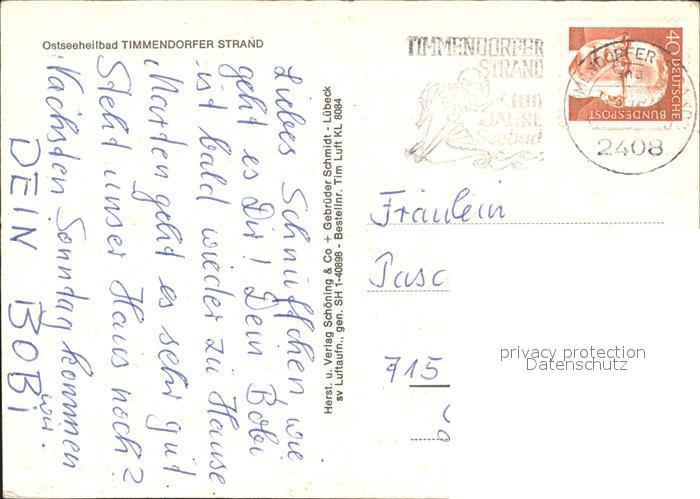 Ostseeheilbad TIMMENDORFER STRAND
Liebes Schnüffchen wie
geht es Dir! Dein Bobi
ist bald wieder zu Hause
Marten geht es sehr gut.
Steht unser Haus noch?
Nächsten Sonntag kommen
wir.
DEIN BOBi
Herst. u. Verlag Schöning & Co + Gebrüder Schmidt - Lübeck
sv Luftaufn., gen. SH 1-40898 - Bestellnr. Tim Luft KL 8084
TIMMENDORFER
STRAND
100
JAHRE
Seebad
40 DEUTSCHE
BUNDESPOST
2408
Fräulein
Pasc
715
privacy protection
Datenschutz